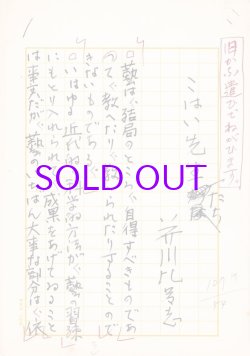 旧かな遣ひでねがひます。
こはい先生たち
芥川比呂志
○藝は、結局のところ、自得すべきものであ
つて、教へたり、教へられたりすることので
きないものである。
○いはゆる近代的、科学的方法が、藝の習練
にもとり入れられ、成果をあげてゐること
は事実だが、藝のいちばん大事な部分は、依
SOLD OUT